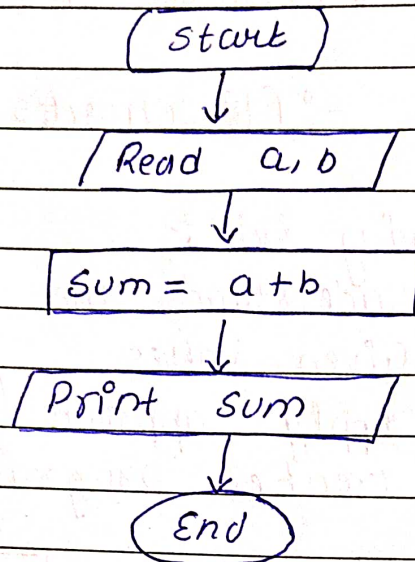 Start
Read a, b
Sum = a + b
Print Sum
End